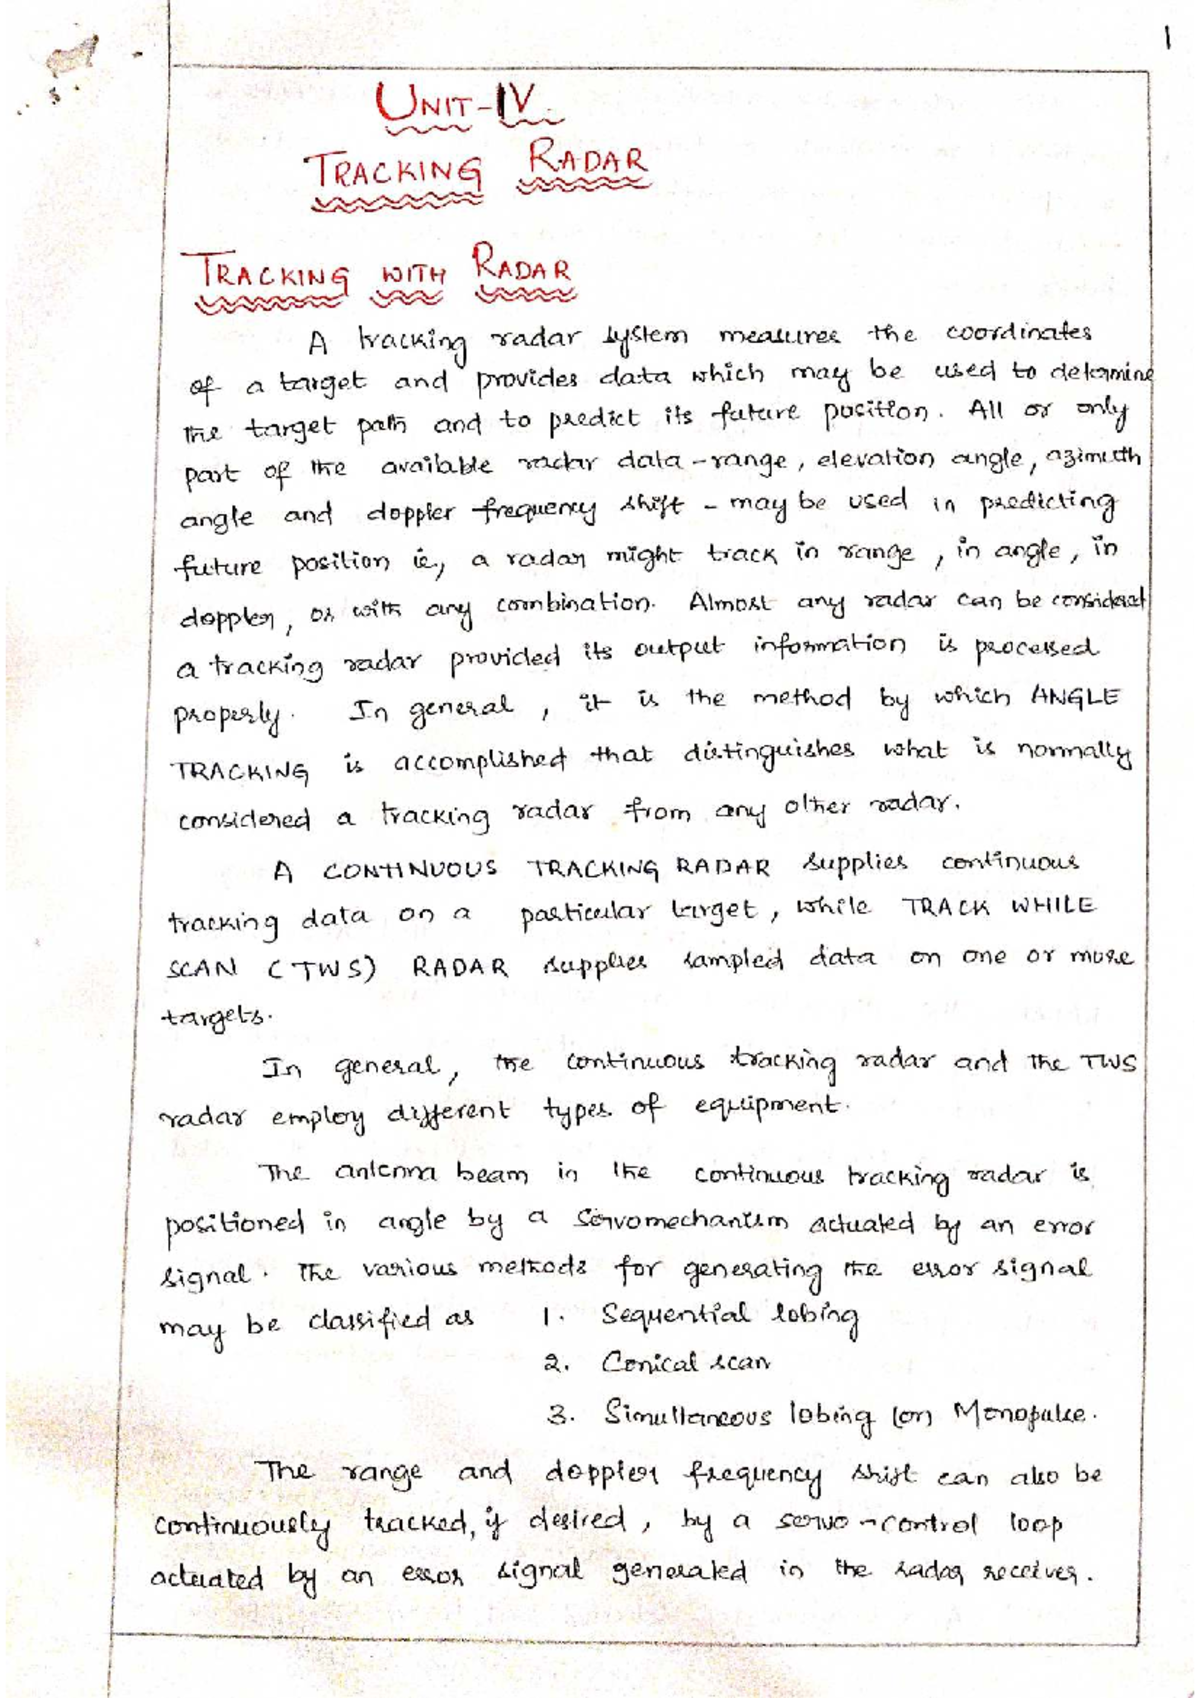 1
UNIT-IV
TRACKING RADAR
TRACKING WITH RADAR
A tracking radar system measures the coordinates
of a target and provides data which may be used to determine
the target path and to predict its future position. All or only
part of the available radar data - range, elevation angle, azimuth
angle and doppler frequency shift - may be used in predicting
future position ie, a radar might track in range, in angle, in
doppler, or with any combination. Almost any radar can be considered
a tracking radar provided its output information is processed
properly. In general, it is the method by which ANGLE
TRACKING is accomplished that distinguishes what is normally
considered a tracking radar from any other radar.
A CONTINUOUS TRACKING RADAR supplies continuous
tracking data on a particular target, while TRACK WHILE
SCAN (TWS) RADAR supplies sampled data on one or more
targets.
In general, the continuous tracking radar and the TWS
radar employ different types of equipment.
The antenna beam in the continuous tracking radar is
positioned in angle by a servomechanism actuated by an error
signal. The various methods for generating the error signal
may be classified as 1. Sequential lobing
2. Conical scan
3. Simultaneous lobing (or) Monopulse.
The range and doppler frequency shift can also be
continuously tracked, if desired, by a servo-control loop
actuated by an error signal generated in the radar receiver.